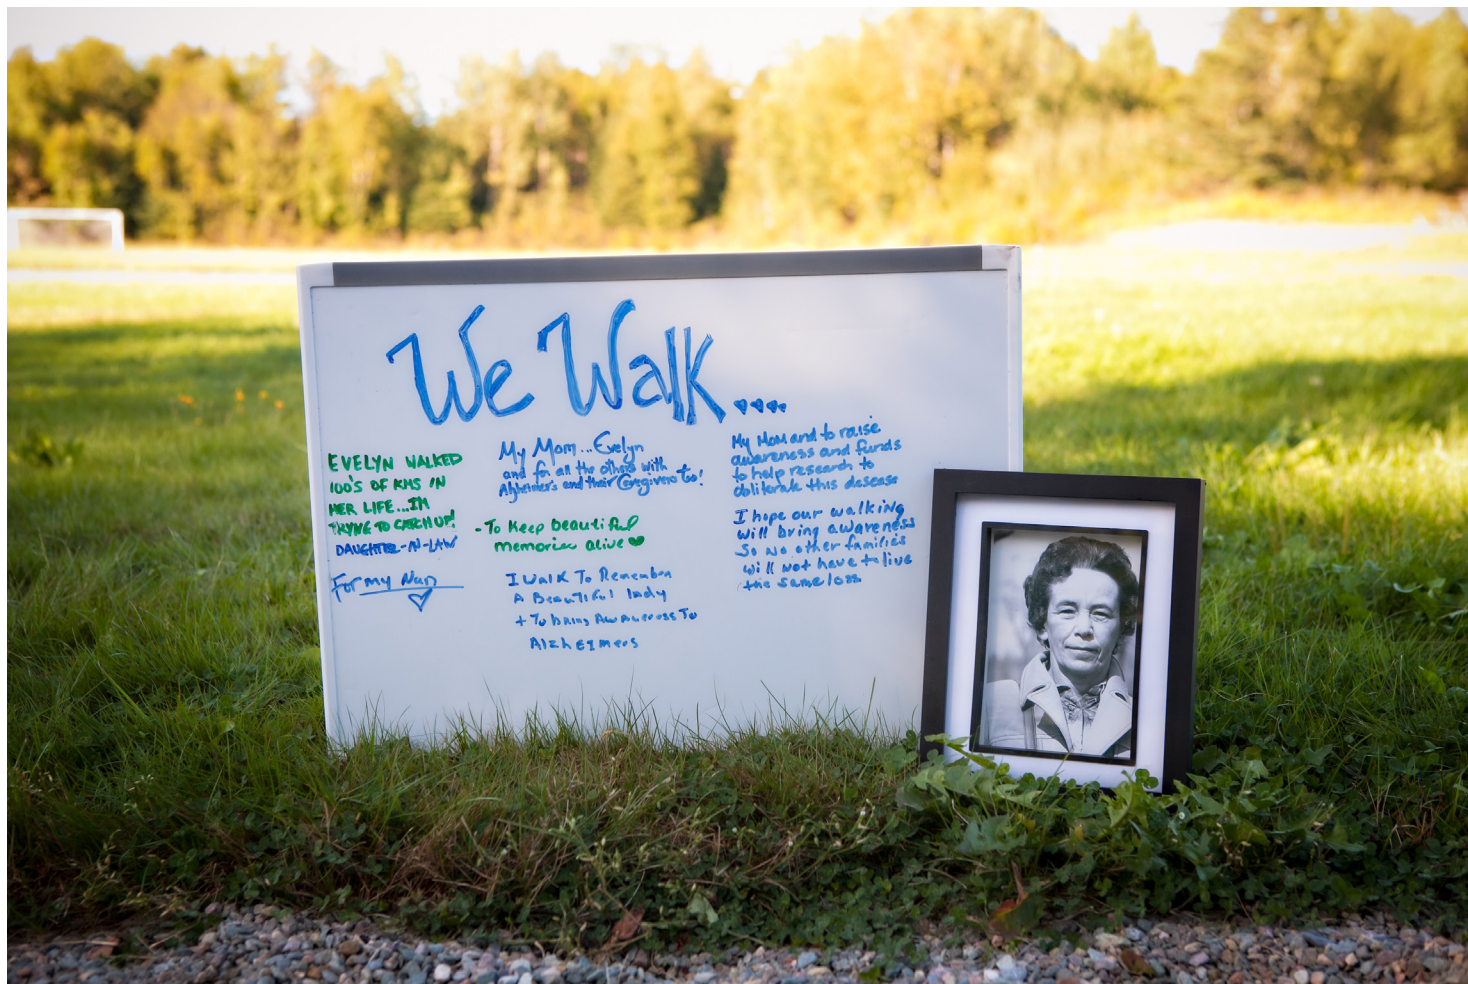 We Walk....
EVELYN WALKED
100'S OF KMS IN
HER LIFE...I'M
TRYING TO CATCH UP!
DAUGHTER-IN-LAW
For my Nan
My Mom...Evelyn
and for all the others with
Alzheimer's and their Caregivers too!
- To Keep beautiful
memories alive
I Walk To Remember
A Beautiful lady
+ To bring Awareness To
Alzheimers
My Mom and to raise
awareness and funds
to help research to
obliterate this desease
I hope our walking
will bring awareness
So no other families
will not have to live
the same loss